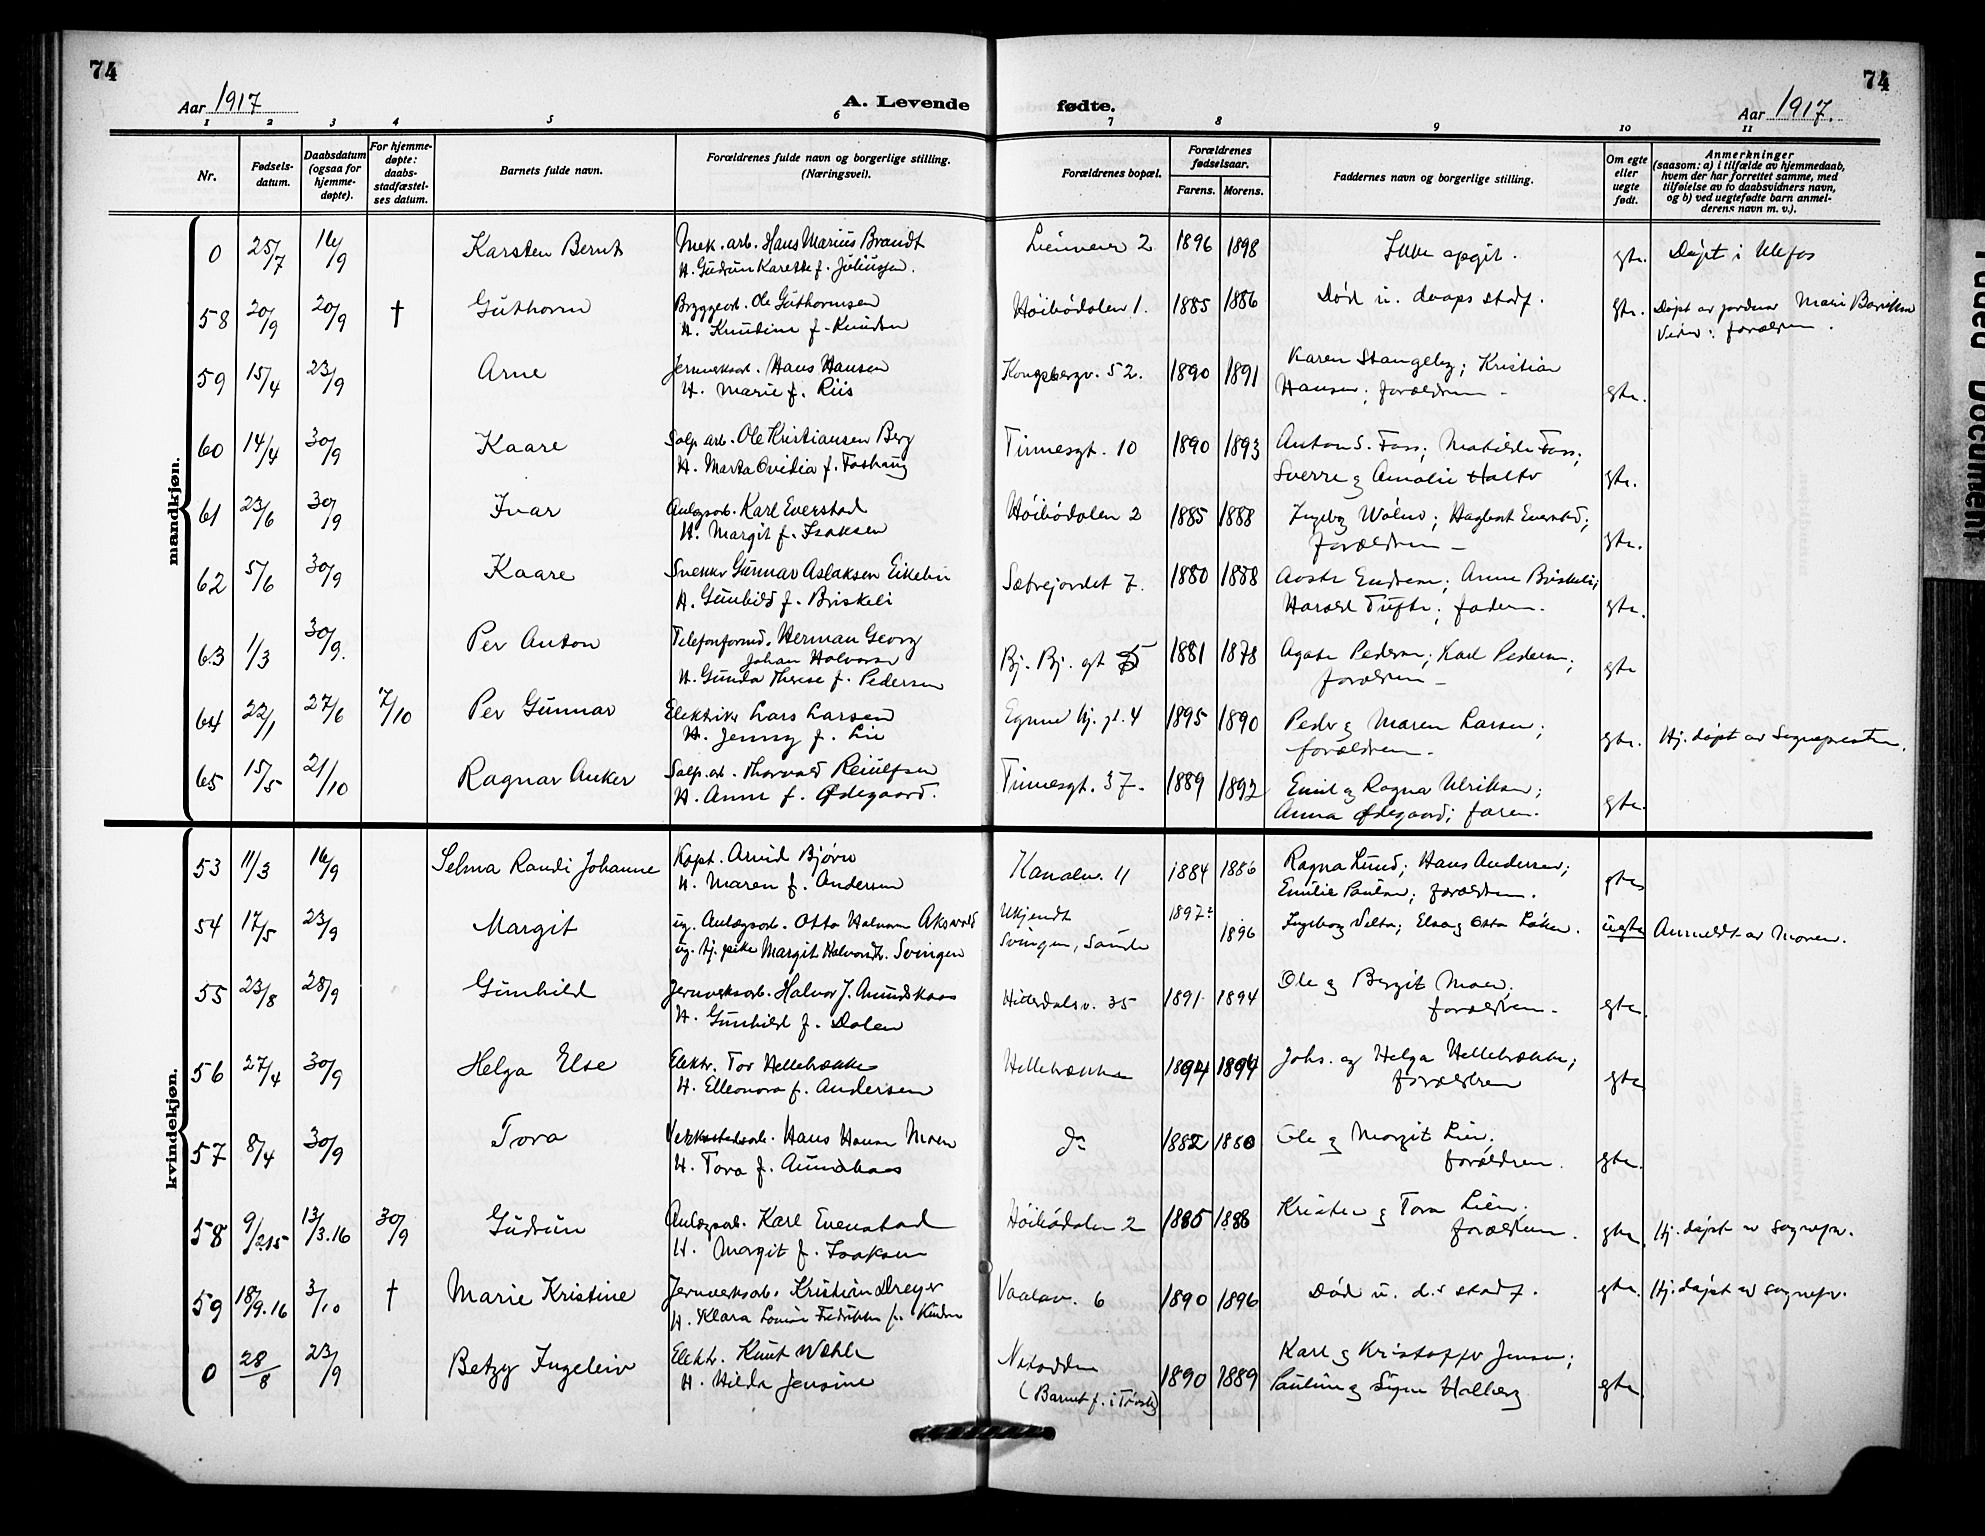 74
74
Aar 1917
A. Levende fødte.
Aar 1917.
1 2 3 4 5 6 7 8 9 10 11
Nr.
Fødsels-
datum.
Daabsdatum
(ogsaa for
hjemme-
døpte).
For hjemme-
døpte:
daabs-
stadfæstel-
ses datum.
Barnets fulde navn.
Forældrenes fulde navn og borgerlige stilling.
(Næringsvei).
Forældrenes bopæl.
Forældrenes
fødselsaar.
Farens. Morens.
Faddernes navn og borgerlige stilling.
Om egte
eller
uegte
født.
Anmerkninger
(saasom: a) i tilfælde av hjemmedaab,
hvem der har forrettet samme, med
tilføielse av to daabsvidners navn,
og b) ved uegtefødte barn anmel-
derens navn m. v.).
mandkjøn.
0 25/7 16/9 Karsten Bernt Mek. arb. Hans Marius Brandt 2 1896 1898 Ikke opgit. gte. Døpt i Ulefos
H. Gudrun Karette f. Juliussen.
58 20/9 20/9 † Guthorm Bryggearb. Ole Guthormsen Høibødalen 1. 1885 1886 Død u. daaps stadf. gte. Døpt av jordmor Mari
H. Knudine f. Knudsen forældrene.
59 15/4 23/9 Arne Jernverksarb. Hans Hansen Kongsbergv. 52. 1890 1891 Karen Stangeby; Kristian
H. Marie f. Riis Hansen; forældrene - gte.
60 14/4 30/9 Kaare Salp. arb. Ole Kristiansen Berg Tinnesgt. 10 1890 1893 Anton S. Foss; Matilde Foss;
H. Marta Ovidia f. Foshaug Sverre g Amalie gte.
61 23/6 30/9 Ivar Anlegsarb. Karl Evenstad Høibødalen 2 1885 1888 Ingebog; Hagbart Evenstad;
H. Margit f. Isaksen forældrene - gte.
62 5/6 30/9 Kaare Snekker Gunnar Aslaksen Sætrejordet 7. 1880 1888 Endresen; Anne Briskeli;
H. Gunhild f. Briskeli Harald Tufte; faderen. gte.
63 1/3 30/9. Per Anton Telefonformd. Herman Georg
Johan Halvorsen Bj. Bj. gt 5 1881 1878 Agate Pedersen; Karl Pedersen;
H. Gunda Therese f. Pedersen forældrene - gte
64 22/1 27/6 7/10 Per Gunnar Elektriker Lars Larsen gt. 4 1895 1890 Peder g Maren Larsen;
H. Jenny f. Lie forældrene. gte. Hj. døpt av Sognepresten.
65 15/5 21/10 Ragnar Anker Salp. arb. Thorvald Reiulfsen Tinnesgt. 37. 1889 1892 Emil g Ragna Ulriksen;
H. Anne f. Ødegaard. Anna Ødegaard; faren. gte.
kvindekjøn.
53 11/3 16/9 Selma Randi Johanne Kapt. Arvid Bjørn Kanalv. 11 1884 1886 Ragna Lund; Hans Andersen;
H. Maren f. Andersen Emilie Paulsen; forældrene. gte
54 17/5 23/9 Margit ug. Anlægsarb. Otto Halvorsen Ukjendt 1897? Ingeborg; Elsa g Otto uegte Anmeldt av Moren.
ug. tj. pike Margit Halvorsdtr. Svingen Svingen, 1896
55 23/8 28/9 Gunhild Jernverksarb. Halvor J. Amundkaas Hitterdalsv. 35 1891 1894 Ole g Bergit Moen;
H. Gunhild f. Dalen forældrene - gte.
56 27/4 30/9 Helga Else Elektr. Tor Hellebrække Hellebrække 1894 1894 Johs. og Helga Hellebrække;
H. Elleonora f. Andersen forældrene gte
57 8/4 30/9 Tora Verkstedsarb. Hans Moen Do 1882 1880 Ole g Margit Lien.
H. Tora f. Amundkaas forældrene. gte.
58 9/2 15 13/3.16 30/9 Gudrun Anlægsarb. Karl Evenstad Høibødalen 2 1885 1888 Kristen g Tora Lien;
H. Margit f. Isaksen forældrene. gte. Hj. døpt av sognepr.
59 18/9.16 3/10 † Marie Kristine Jernverksarb. Kristian Dreyer Vaalav. 6 1890 1896 Død u. d.s stadf. gte. Hj. døpt av sognepr.
H. Klara Lovise Fredrikke f. Knudsen
0 28/8 23/9 Betzy Ingeleiv Elektr. Knut Wæhle Notodden 1890 1889 Karl g Kristoffer Jensen;
H. Hilda Jensine (Barnet f. i Pauline g Signe Halberg gte.